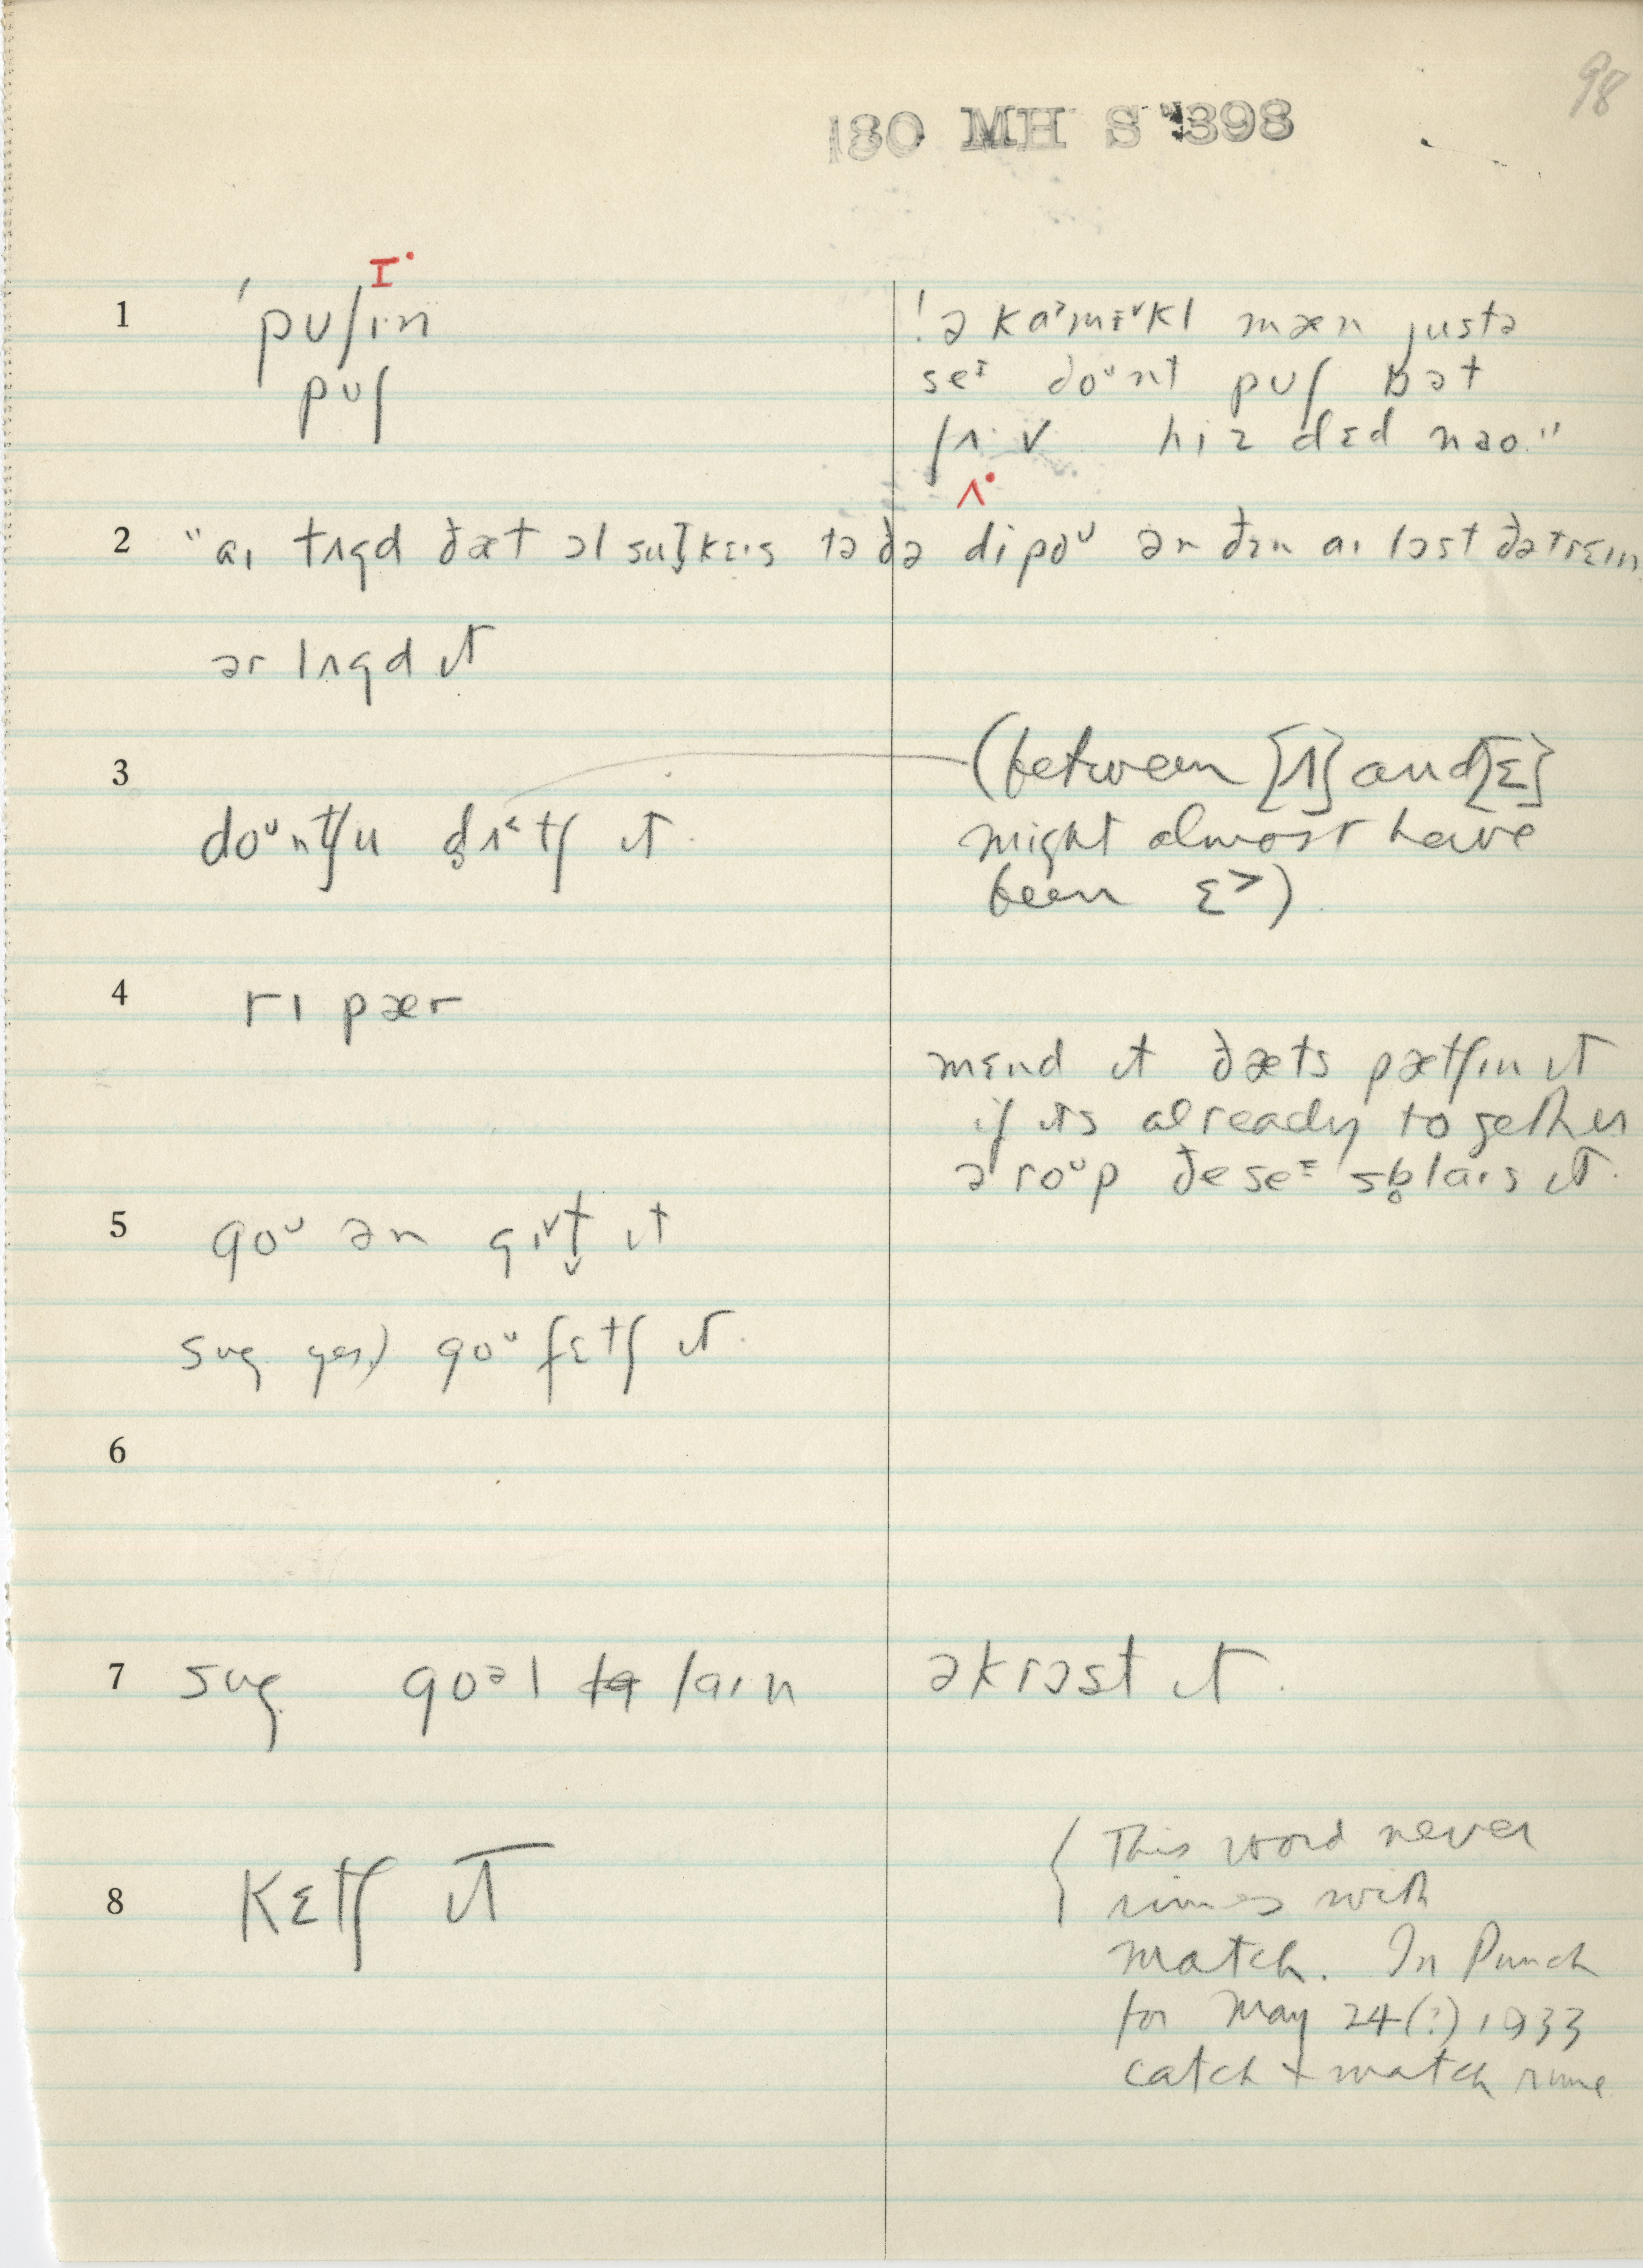 98
180 MH S 398
I·
1 ˈpuʃɪn
puʃ
ˈə kaᵊmɪᵛkl mæn justə
seᶦ doᵘnt puʃ bət
ʃʌv hiz dɛd nao."
ʌ·
2 "aɪ tʌgd ðæt ol sutkɛɪs tə ðə dipoᵘ ən ðɛn aɪ lɔst ðə trɛɪn
ər lʌgd ɪt
3 (between [ʌ] and [ɛ]
doᵘntʃu d̥ʌ˂tʃ ɪt might almost have
been ɛ˃)
4 rɪ pær
mɛnd ɪt ðæts pætʃɪn ɪt
if its already together
ə roᵘp ðe seᶦ sb̥laɪs ɪt.
5 goᵘ ən gɪᵛt̬ ɪt
sug yes) goᵘ fɛtʃ ɪt.
6
7 sug goəl laɪn əkrɔst ɪt.
8 Kɛtʃ ɪt
{ This word never
rimes with
match. In Punch
for May 24(?) 1933
catch + match rime